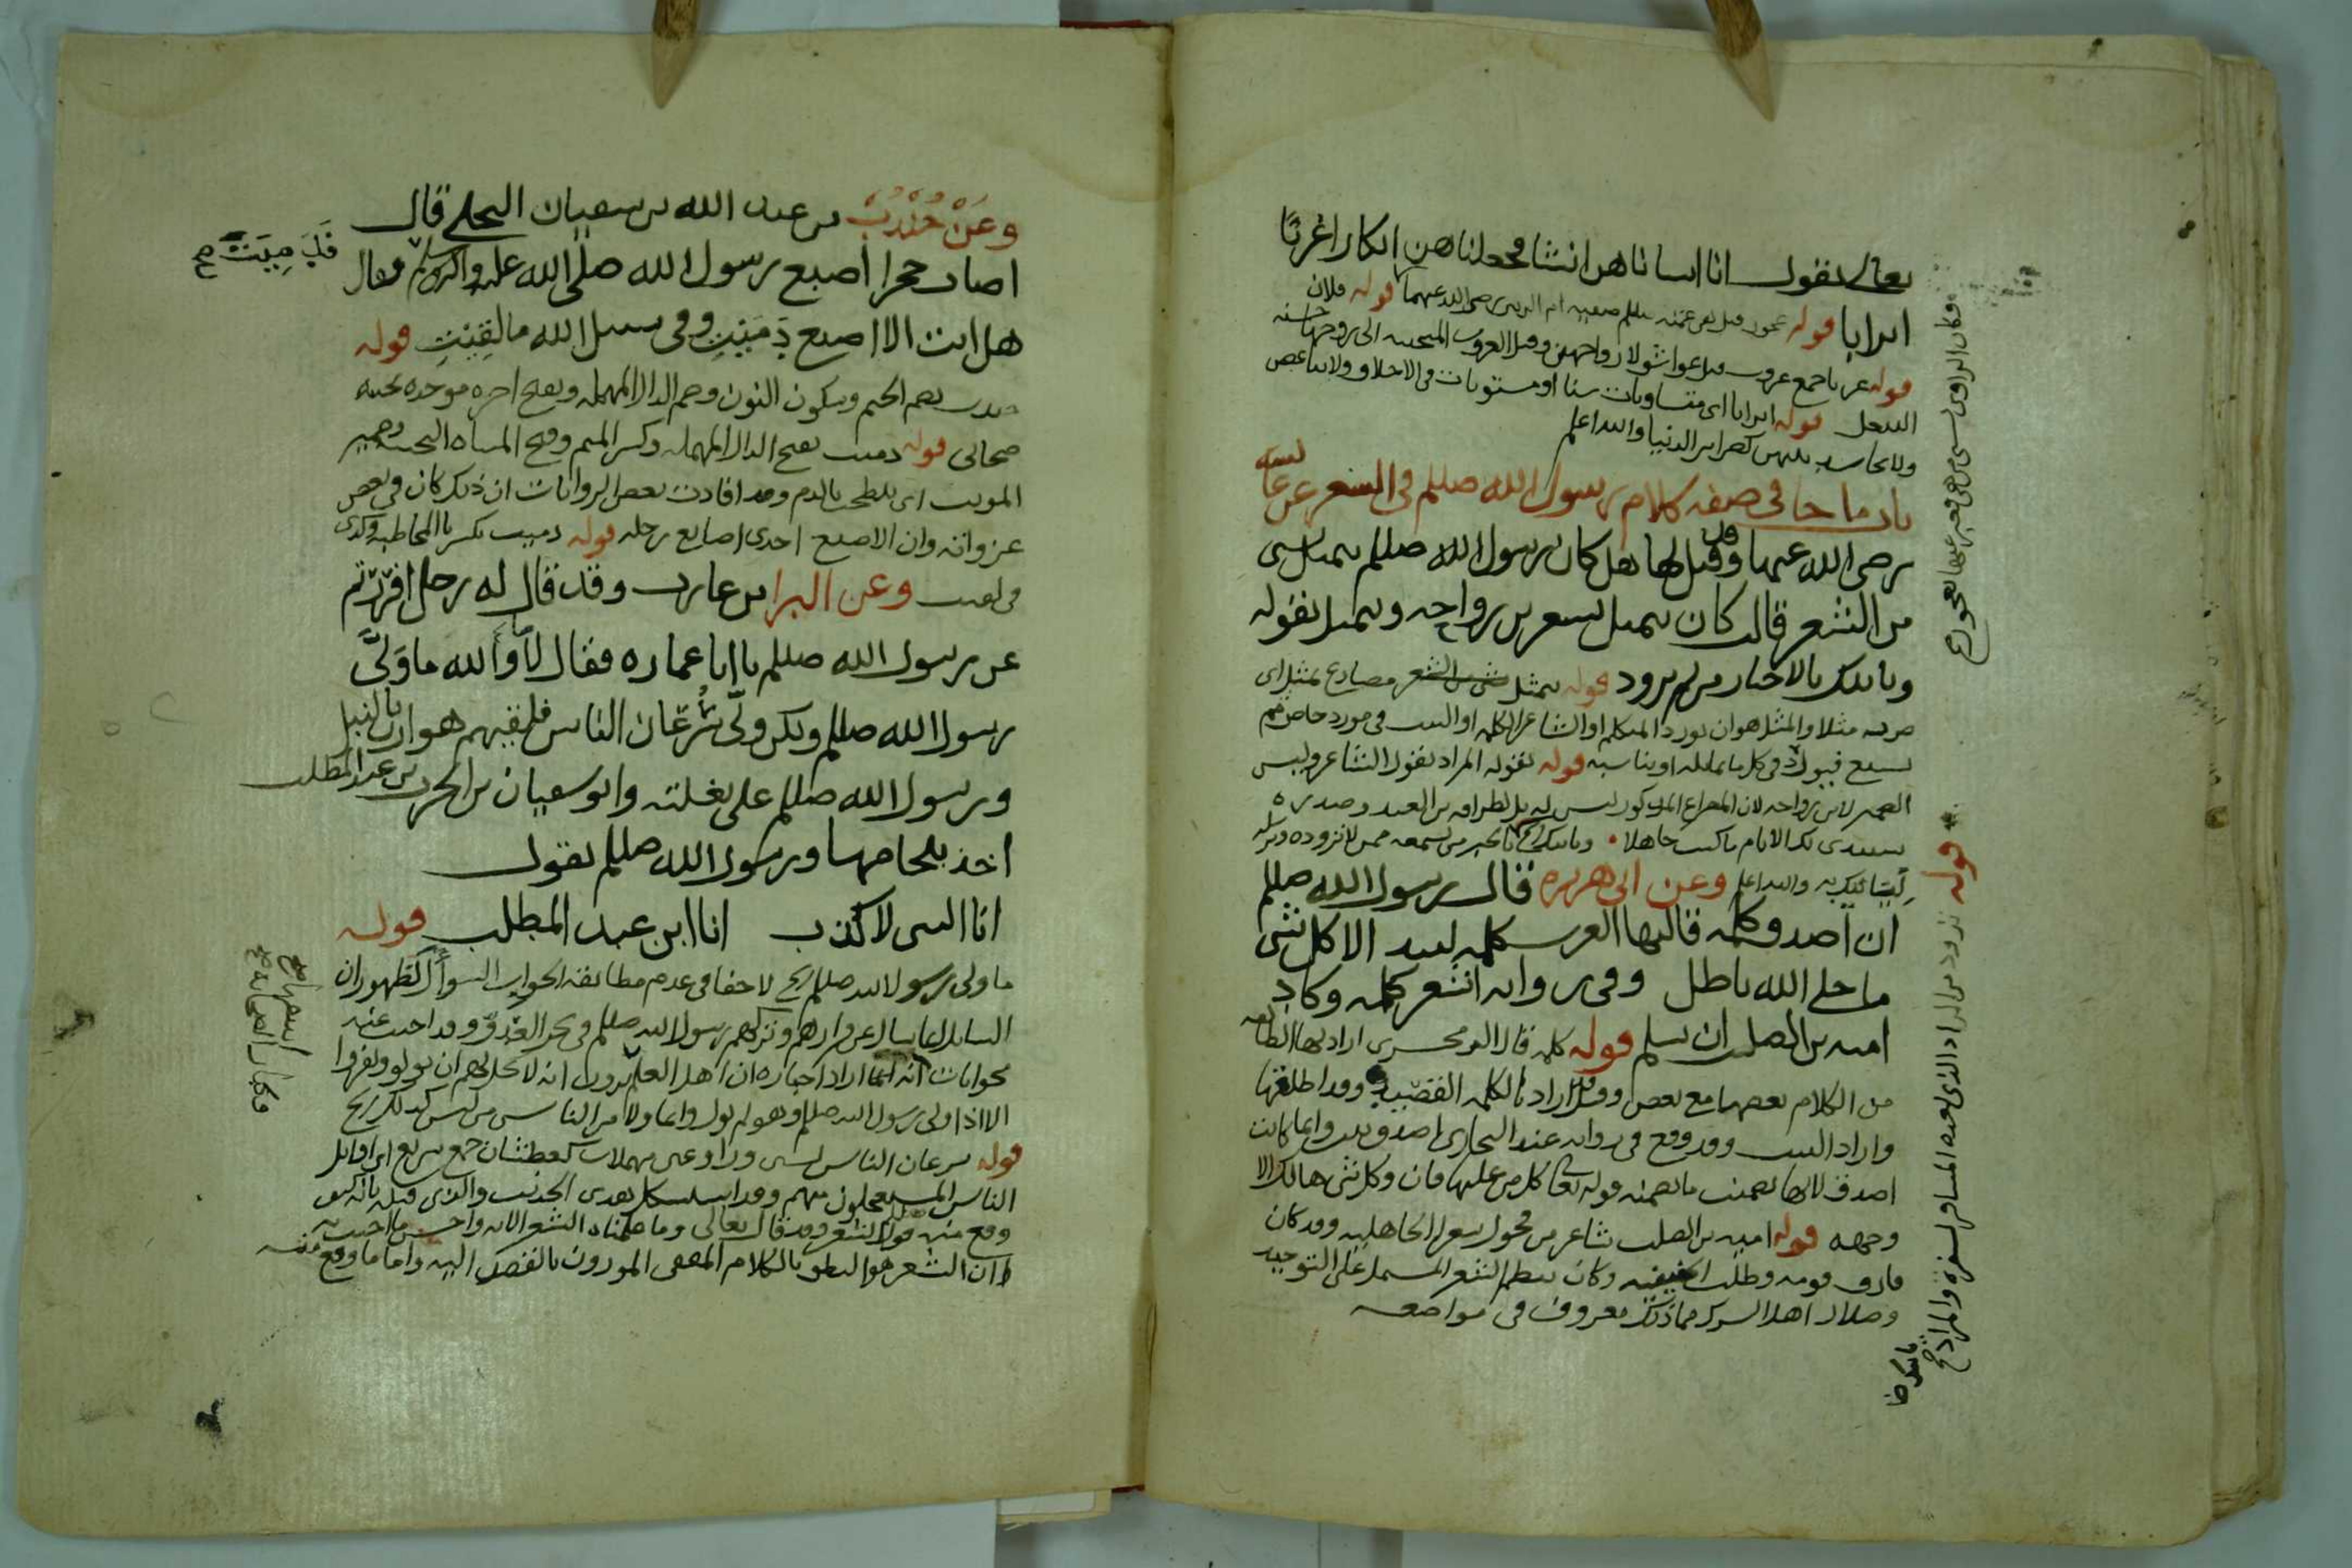 تعالى يقول انا انشاناهن انشا فجعلناهن ابكارا عربا
اترابا قوله عجوز قيل هي عمته صللم صفيه ام الزبير رضى الله عنهما قوله فلان
قوله عربا جمع عروب قيل عواشق لازواجهن وقيل العروب المتحببه الى زوجها حسنه
التبعل قوله اترابا اى متساويات سنا او مستويات فى الاخلاق ولا تباغض
ولا تحاسد بينهن كضراير الدنيا والله اعلم
باب ما جا فى صفه كلام رسول الله صللم فى الشعر عن عايشه
رضى الله عنها وقد قيل لها هل كان رسول الله صللم يتمثل بشى
من الشعر قالت كان يتمثل بشعر بن رواحه ويتمثل بقوله
وياتيك بالاخبار من لم تزود قوله يتمثل مضارع تمثل اى
ضرب مثلا والمثل هو ان يورد المتكلم او الشاعر الكلمه او البيت فى مورد خاص ثم
يشيع فيورد فى كل ما يماثله او يناسبه قوله بقوله المراد بقول الشاعر وليس
الضمير لابن رواحه لان المصراع المذكور ليس له بل لطرافه بن العبد وصدره
ستبدى لك الايام ما كنت جاهلا وياتيك بالخبر من تسمعه ممن لا تزوده وترسله
ليتبايك به والله اعلم وعن ابى هريره قال رسول الله صللم
ان اصدق كلمه قالتها العرب كلمه لبيد الا كل شى
ما خلا الله باطل وفى روايه اشعر كلمه وكاد
اميه بن الصلت ان يسلم قوله كلمه قال الزمخشرى اراد بها الطايفه
من الكلام بعضها مع بعض وقيل اراد بالكلمه القصيده وقد اطلقها
واراد البيت وقد وقع فى روايه عند البخارى اصدق بيت وانما كانت
اصدق لانها تضمنت ما تضمنه قوله تعالى كل من عليها فان وكل شى هالك الا
وجهه قوله اميه بن الصلت شاعر من فحول شعرا الجاهليه وقد كان
فارق قومه وطلب الحنيفيه وكان ينظم الشعر المشتمل على التوحيد
وضلال اهل الشرك مما ذلك معروف فى مواضعه
قوله تزود من الزاد الذى يعده المسافر لسفره والمراد
وعن جندب بن عبد الله بن سفيان البجلى قال
اصاب حجر اصبع رسول الله صلى الله عليه واله وسلم فقال
فدَمِيَت صح
هل انت الا اصبع دَمِيْتِ وفى سبيل الله ما لقِيْتِ قوله
جندب بضم الجيم وسكون النون وضم الدال المهمله وبفتح اخره موحده تحتيه
صحابى قوله دميت بفتح الدال المهمله وكسر الميم وفتح المثناه التحتيه وضمير
المونث اى تلطخت بالدم وقد افادت بعض الروايات ان ذلك كان فى بعض
غزواته وان الاصبع احدى اصابع رجله قوله دميت بكسر تا المخاطبه وكذى
فى لقيت وعن البرا بن عازب وقد قال له رجل افررتم
عن رسول الله صللم يا ابا عماره فقال لا والله ما ولَّى
رسول الله صللم ولكن ولّى سُرعان الناس فلقيهم هوازن بالنبل
ورسول الله صللم على بغلته وابو سفيان بن الحرث بن عبد المطلب
اخذ بلجامها ورسول الله صللم يقول
انا النبى لا كذب انا ابن عبد المطلب قوله
ما ولى رسول الله صللم الخ لا خفا فى عدم مطابقه الجواب السوال لظهور ان
السايل انما سال عن فرارهم وتركهم رسول الله صللم فى نحر العدو وقد اجيب عنه
بجوابات انه انما اراد اخباره ان اهل العلم يرون انه لا يحل لهم ان يولو ويفروا
الا اذا ولى رسول الله صللم وهو لم يول وانما ولا من الناس من ليس كذلك الخ
قوله سرعان الناس بسين ورا وعين مهملات كعطشان جمع سريع اى اوايل
الناس المستعجلون منهم وقد استشكل بعدى الحديث والذى قبله بانه كيف
وقع منه صللم قول الشعر وقد قال تعالى وما علمناه الشعر الايه واحسن ما اجيب به
ان الشعر هو النطق بالكلام المقفى الموزون بالقصد اليه واما ما وقع منه